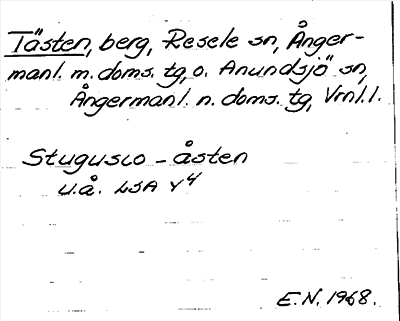 Tåsten, berg, Resele sn, Ånger-
manl. m. doms. tg, o. Anundsjö sn,
Ångermanl. n. doms. tg, Vrnl. l.
Stugusco - åsten
u.å. LSA Y4
E.N. 1968.